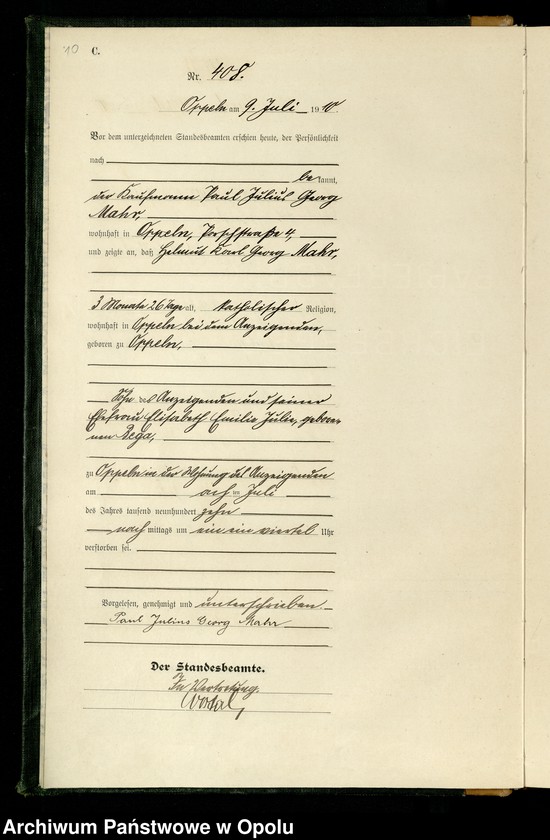 10 C.
Nr. 408.
Oppeln am 9. Juli 1910
Vor dem unterzeichneten Standesbeamten erschien heute, der Persönlichkeit
nach
bekannt,
der Kaufmann Paul Julius Georg
Mahr,
wohnhaft in Oppeln, 4,
und zeigte an, daß Helmut Karl Georg Mahr,
3 Monate 26 Tage alt, katholischer Religion,
wohnhaft in Oppeln bei dem Anzeigenden,
geboren zu Oppeln,
Sohn des Anzeigenden und seiner
Ehefrau Elisabeth Emilie Julie, gebore-
nen
zu Oppeln in der Wohnung des Anzeigenden
am acht ten Juli
des Jahres tausend neunhundert zehn
nach mittags um ein ein viertel Uhr
verstorben sei.
Vorgelesen, genehmigt und unterschrieben
Paul Julius Georg Mahr
Der Standesbeamte.
In Vertretung.
Archiwum Państwowe w Opolu